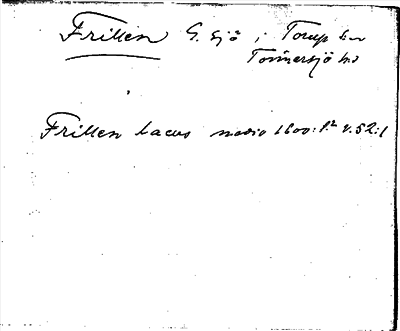 Frillen G. sjö i Torup sn
Tönnersjö hd
Frillen lacus medio 1600: l.² v. 52:1